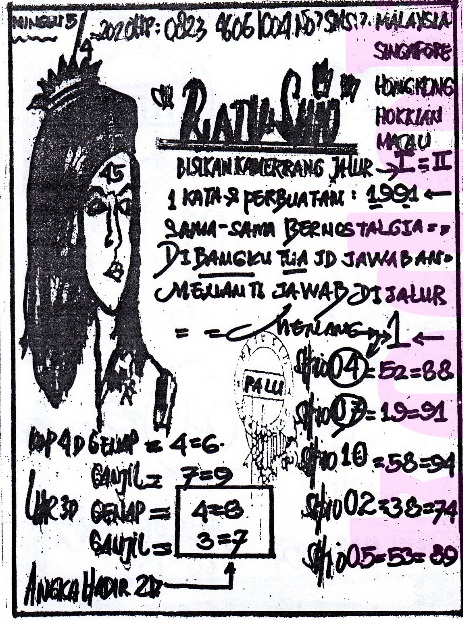 MINGGU 5
4
2020 HP: 0823 4606 1004 No? SMS?
MALAYSIA
SINGAPORE
HONGKONG
HOKKIAN
MACAU
"RATU SHIO"
45
BISIKAN KAMERRANG JALUR → I = II
1 KATA 2 PERBUATAN: 1991 ←
SAMA-SAMA BERNOSTALGIA = =
DI BANGKU TUA JD JAWABAN =
MENANTI JAWAB DI JALUR
= = MENANG → 1 ←
PALU
Shio 04 = 52 = 88
Shio 07 = 19 = 91
Shio 10 = 58 = 94
Shio 02 = 38 = 74
Shio 05 = 53 = 89
KOP 4D GENAP = 4 = 6
GANJIL = 7 = 9
LHR 3D GENAP = 4 = 8
GANJIL = 3 = 7
ANGKA HADIR 2D